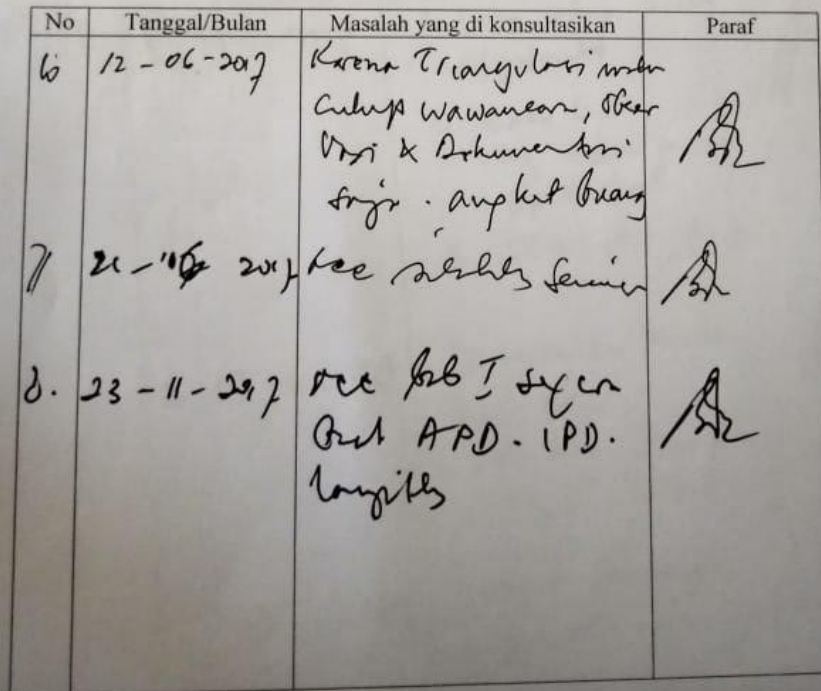 No Tanggal/Bulan Masalah yang di konsultasikan Paraf
6 12-06-2017 Karena Triangulasi maka
cukup wawancara, obser
vasi & Dokumentasi
saja. angket buang
7 2017 Acc seminar
8. 23-11-2017 Acc bab I
APD. IPD.